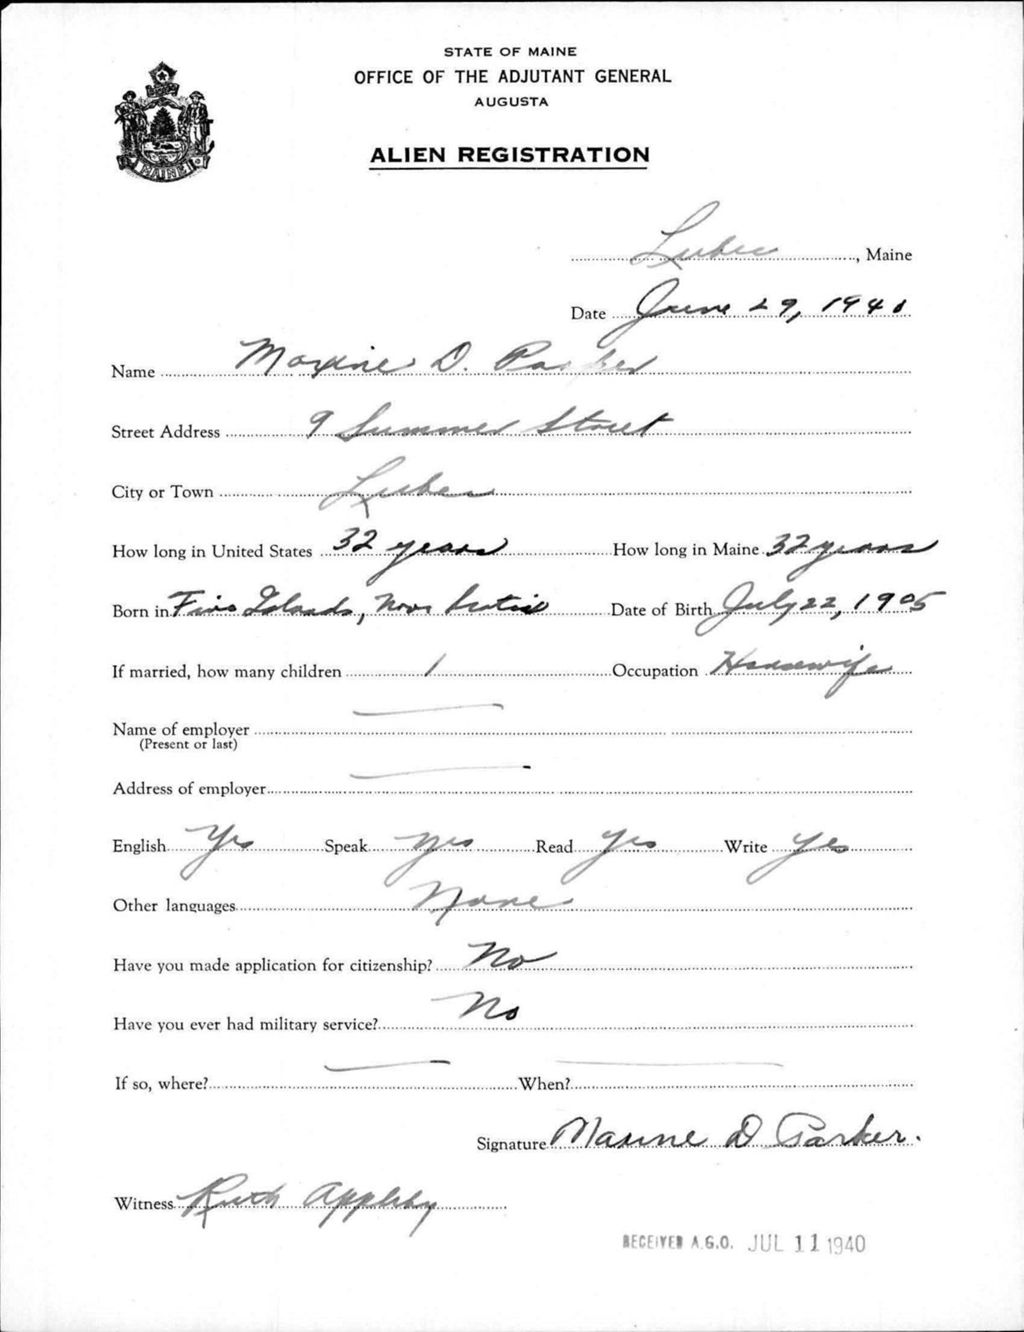 STATE OF MAINE
OFFICE OF THE ADJUTANT GENERAL
AUGUSTA
ALIEN REGISTRATION
MAINE
Lubec, Maine
Date June 29, 1940
Name Maxine D. Parker
Street Address 9 Summer Street
City or Town Lubec
How long in United States 32 years How long in Maine 32 years
Born in Five Islands, Nova Scotia Date of Birth July 22, 1905
If married, how many children 1 Occupation Housewife
Name of employer
(Present or last)
Address of employer
English Yes Speak Yes Read Yes Write Yes
Other languages None
Have you made application for citizenship? No
Have you ever had military service? No
If so, where? When?
Signature Maxine D Parker.
Witness Ruth Appleby
RECEIVED A.G.O. JUL 11 1940